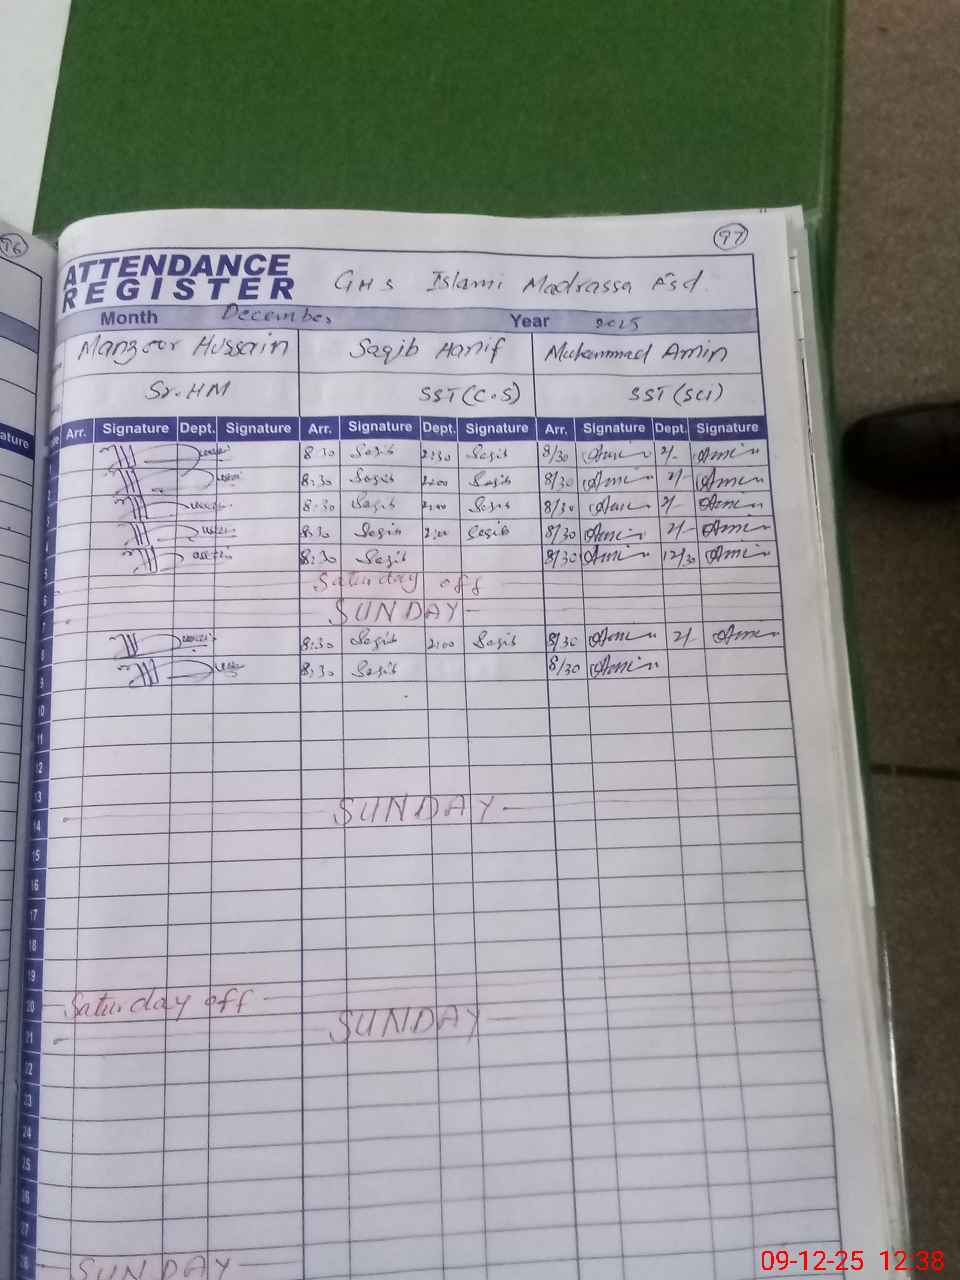 76
77
ATTENDANCE
REGISTER
GHS Islami Madrassa Fsd.
Month December Year 2025
Manzoor Hussain Saqib Hanif Muhammad Amin
Sr.HM SST(C.S) SST(SCI)
ature Arr. Signature Dept. Signature Arr. Signature Dept. Signature Arr. Signature Dept. Signature
1 8:30 Saqib 2:30 Saqib 8/30 Amin 2/- Amin
2 8:30 Saqib 2:00 Saqib 8/30 Amin 2/- Amin
3 8:30 Saqib 2:00 Saqib 8/30 Amin 2/- Amin
4 8:30 Saqib 2:00 Saqib 8/30 Amin 2/- Amin
5 8:30 Saqib 8/30 Amin 12/30 Amin
6 Saturday off
7 SUNDAY-
8 8:30 Saqib 2:00 Saqib 8/30 Amin 2/- Amin
9 8:30 Saqib 8/30 Amin
10
11
12
13
14 SUNDAY-
15
16
17
18
19
20 Saturday off-
21 SUNDAY-
22
23
24
25
26
27
28 SUNDAY-
09-12-25 12:38